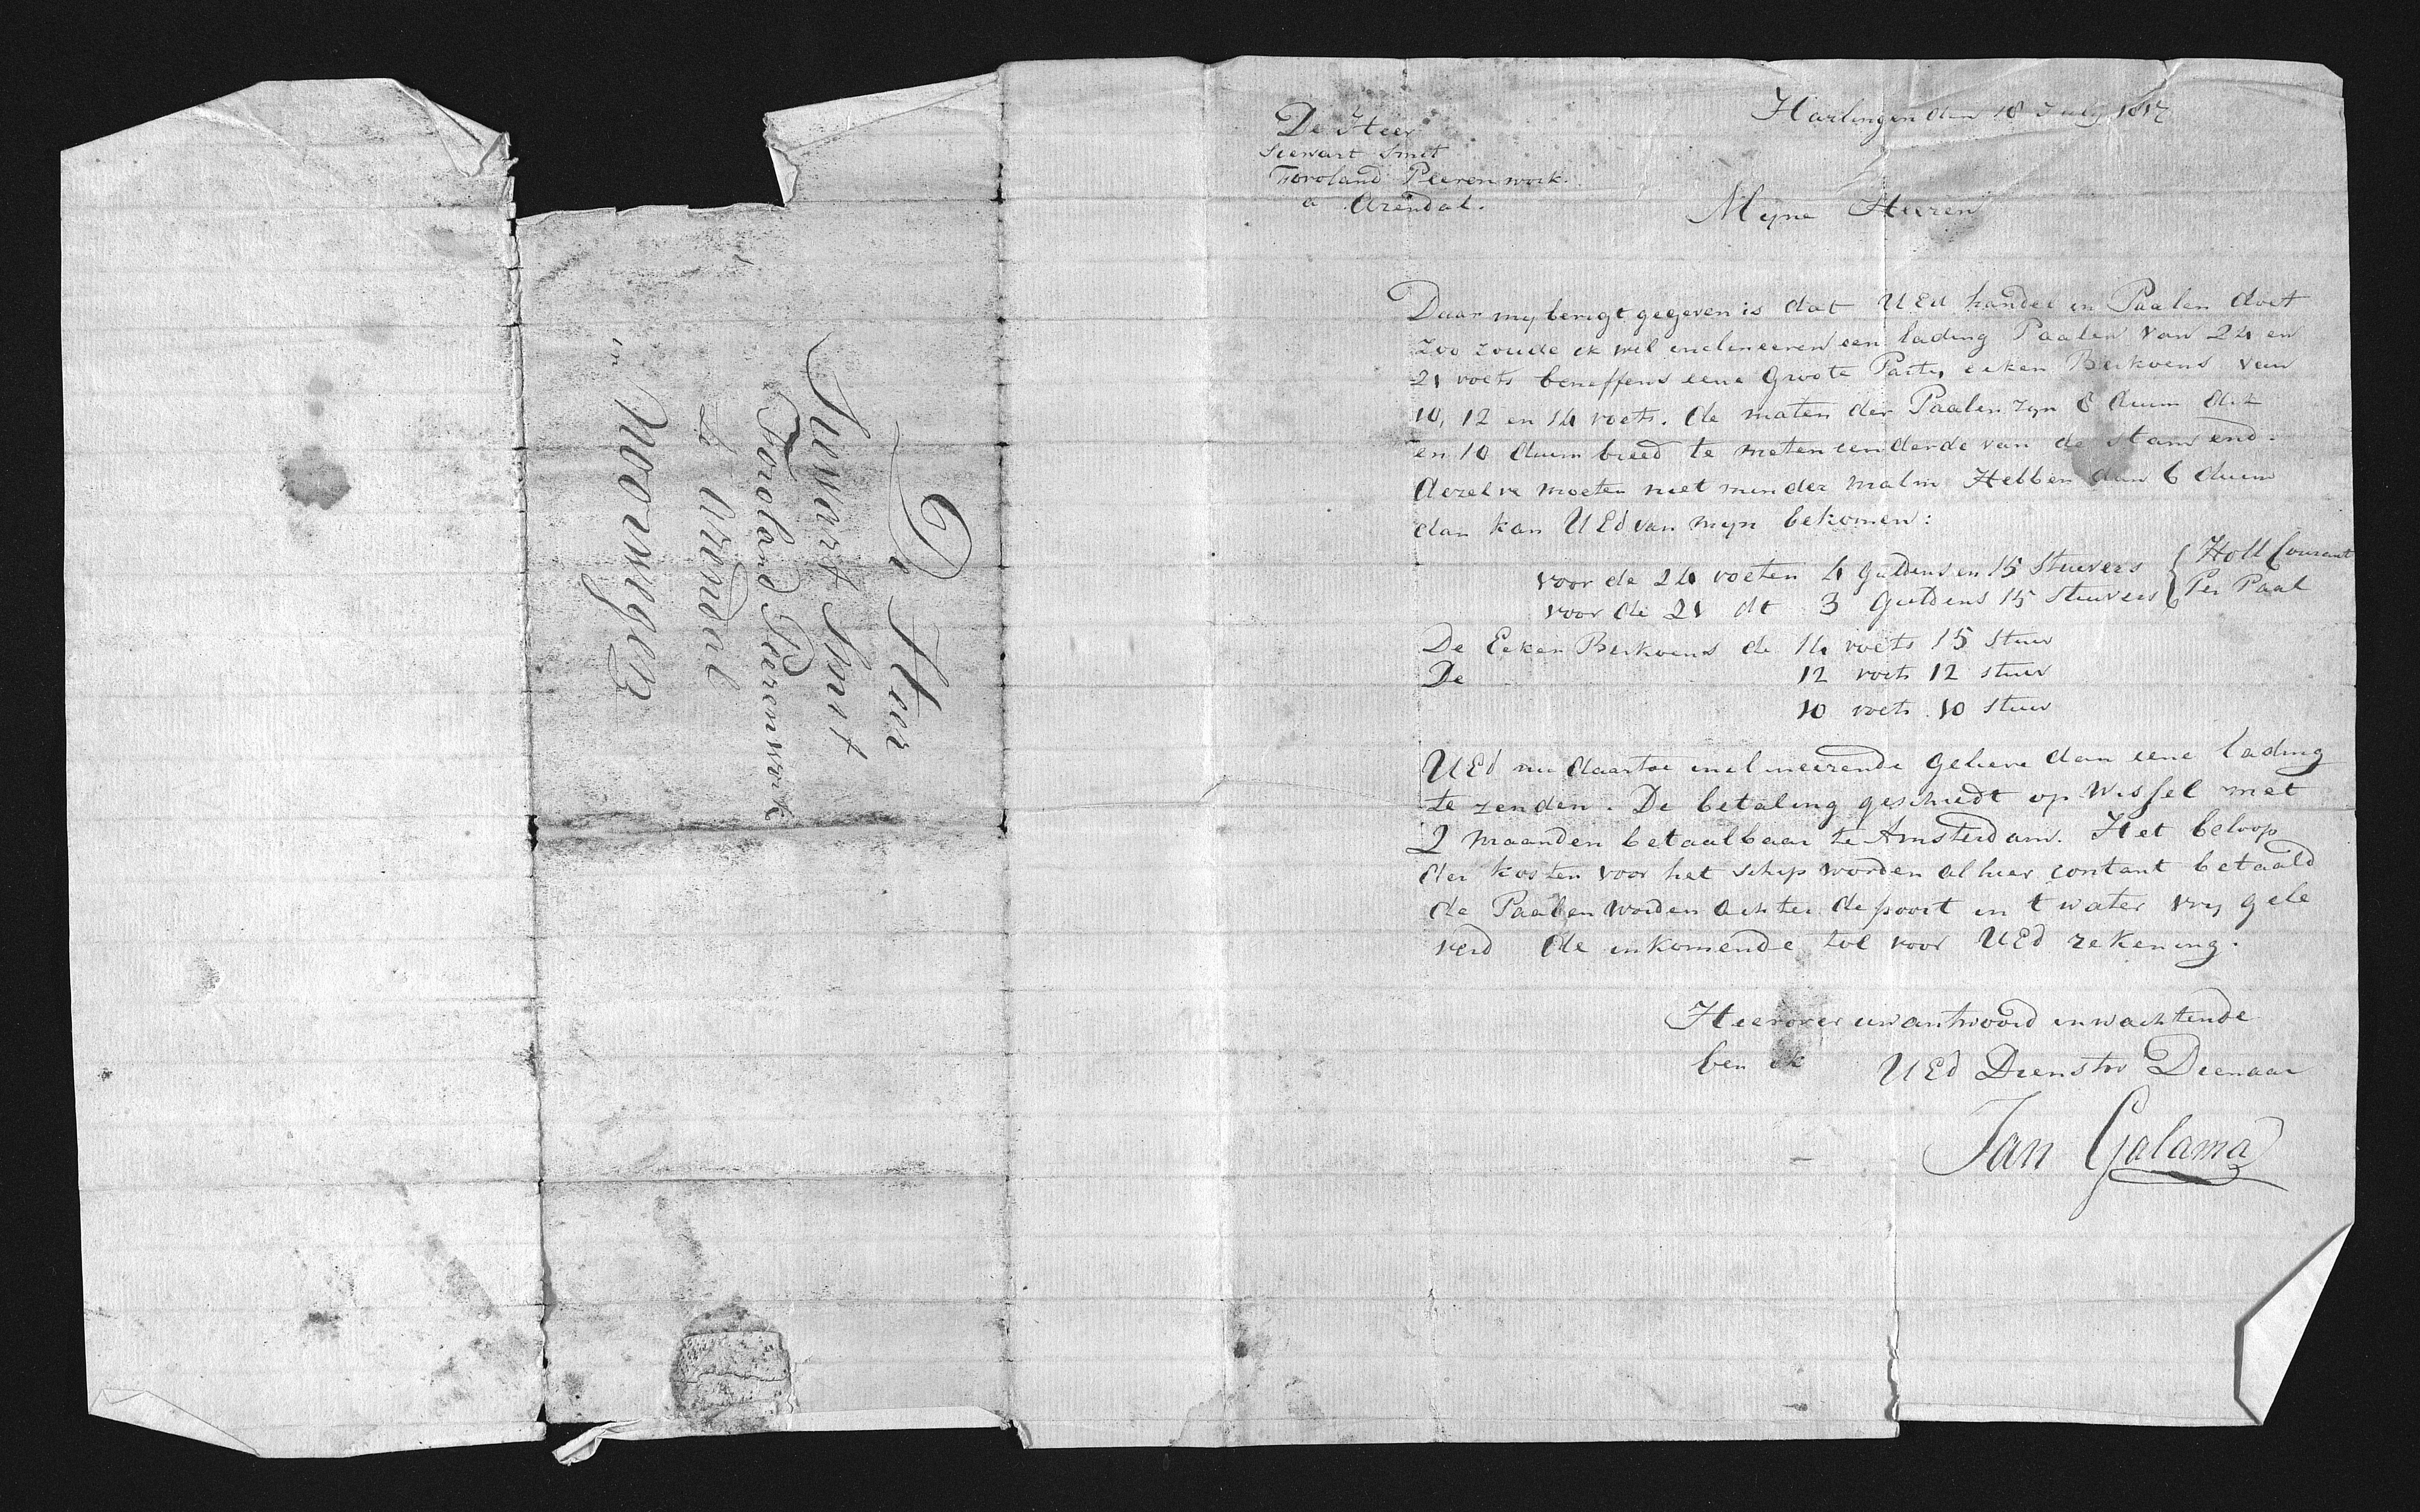 De Heer
Siewart Smit
Froland Peerenwork
a Arendal.
Harlingen den 18 July 1817
Myne Heeren
Daar my berigt gegeven is dat UEd handel in Paalen doet
zoo zoude ik wel inclineeren een lading Paalen van 24 en
21 voets beneffens eene Groote Party eeken Berkoens van
10, 12 en 14 voets. de maten der Paalen zyn 8 duim dik
en 10 duim breed te meten een derde van de stam end.
dezelve moeten niet minder malin Hebben dan 6 duim
dan kan UEd van myn bekomen:
voor de 24 voeten 4 guldens en 15 Stuivers { Holl Courant
voor de 21 dt 3 Guldens 15 stuivers { Per Paal
De Eeken Berkoens de 14 voets 15 Stuiv
De 12 voets 12 stuiv
10 voets 10 stuiv
UEd nu daartoe inclineerende gelieve dan eene lading
te zenden. De betaling geschiedt op Wissel met
2 maanden betaalbaar te Amsterdam. Het beloop
der kosten voor het schip worden alhier contant betaald
de Paalen worden achter de poort in t water vry gele
verd de inkomende tol voor UEd rekening.
Hierover uw antwoord inwachtende
ben ik UEd Dienstw Dienaar
Jan Galama
De Heer
Siewart Smit
Froland Peerenwerk
a Arendal
in Noorwegen